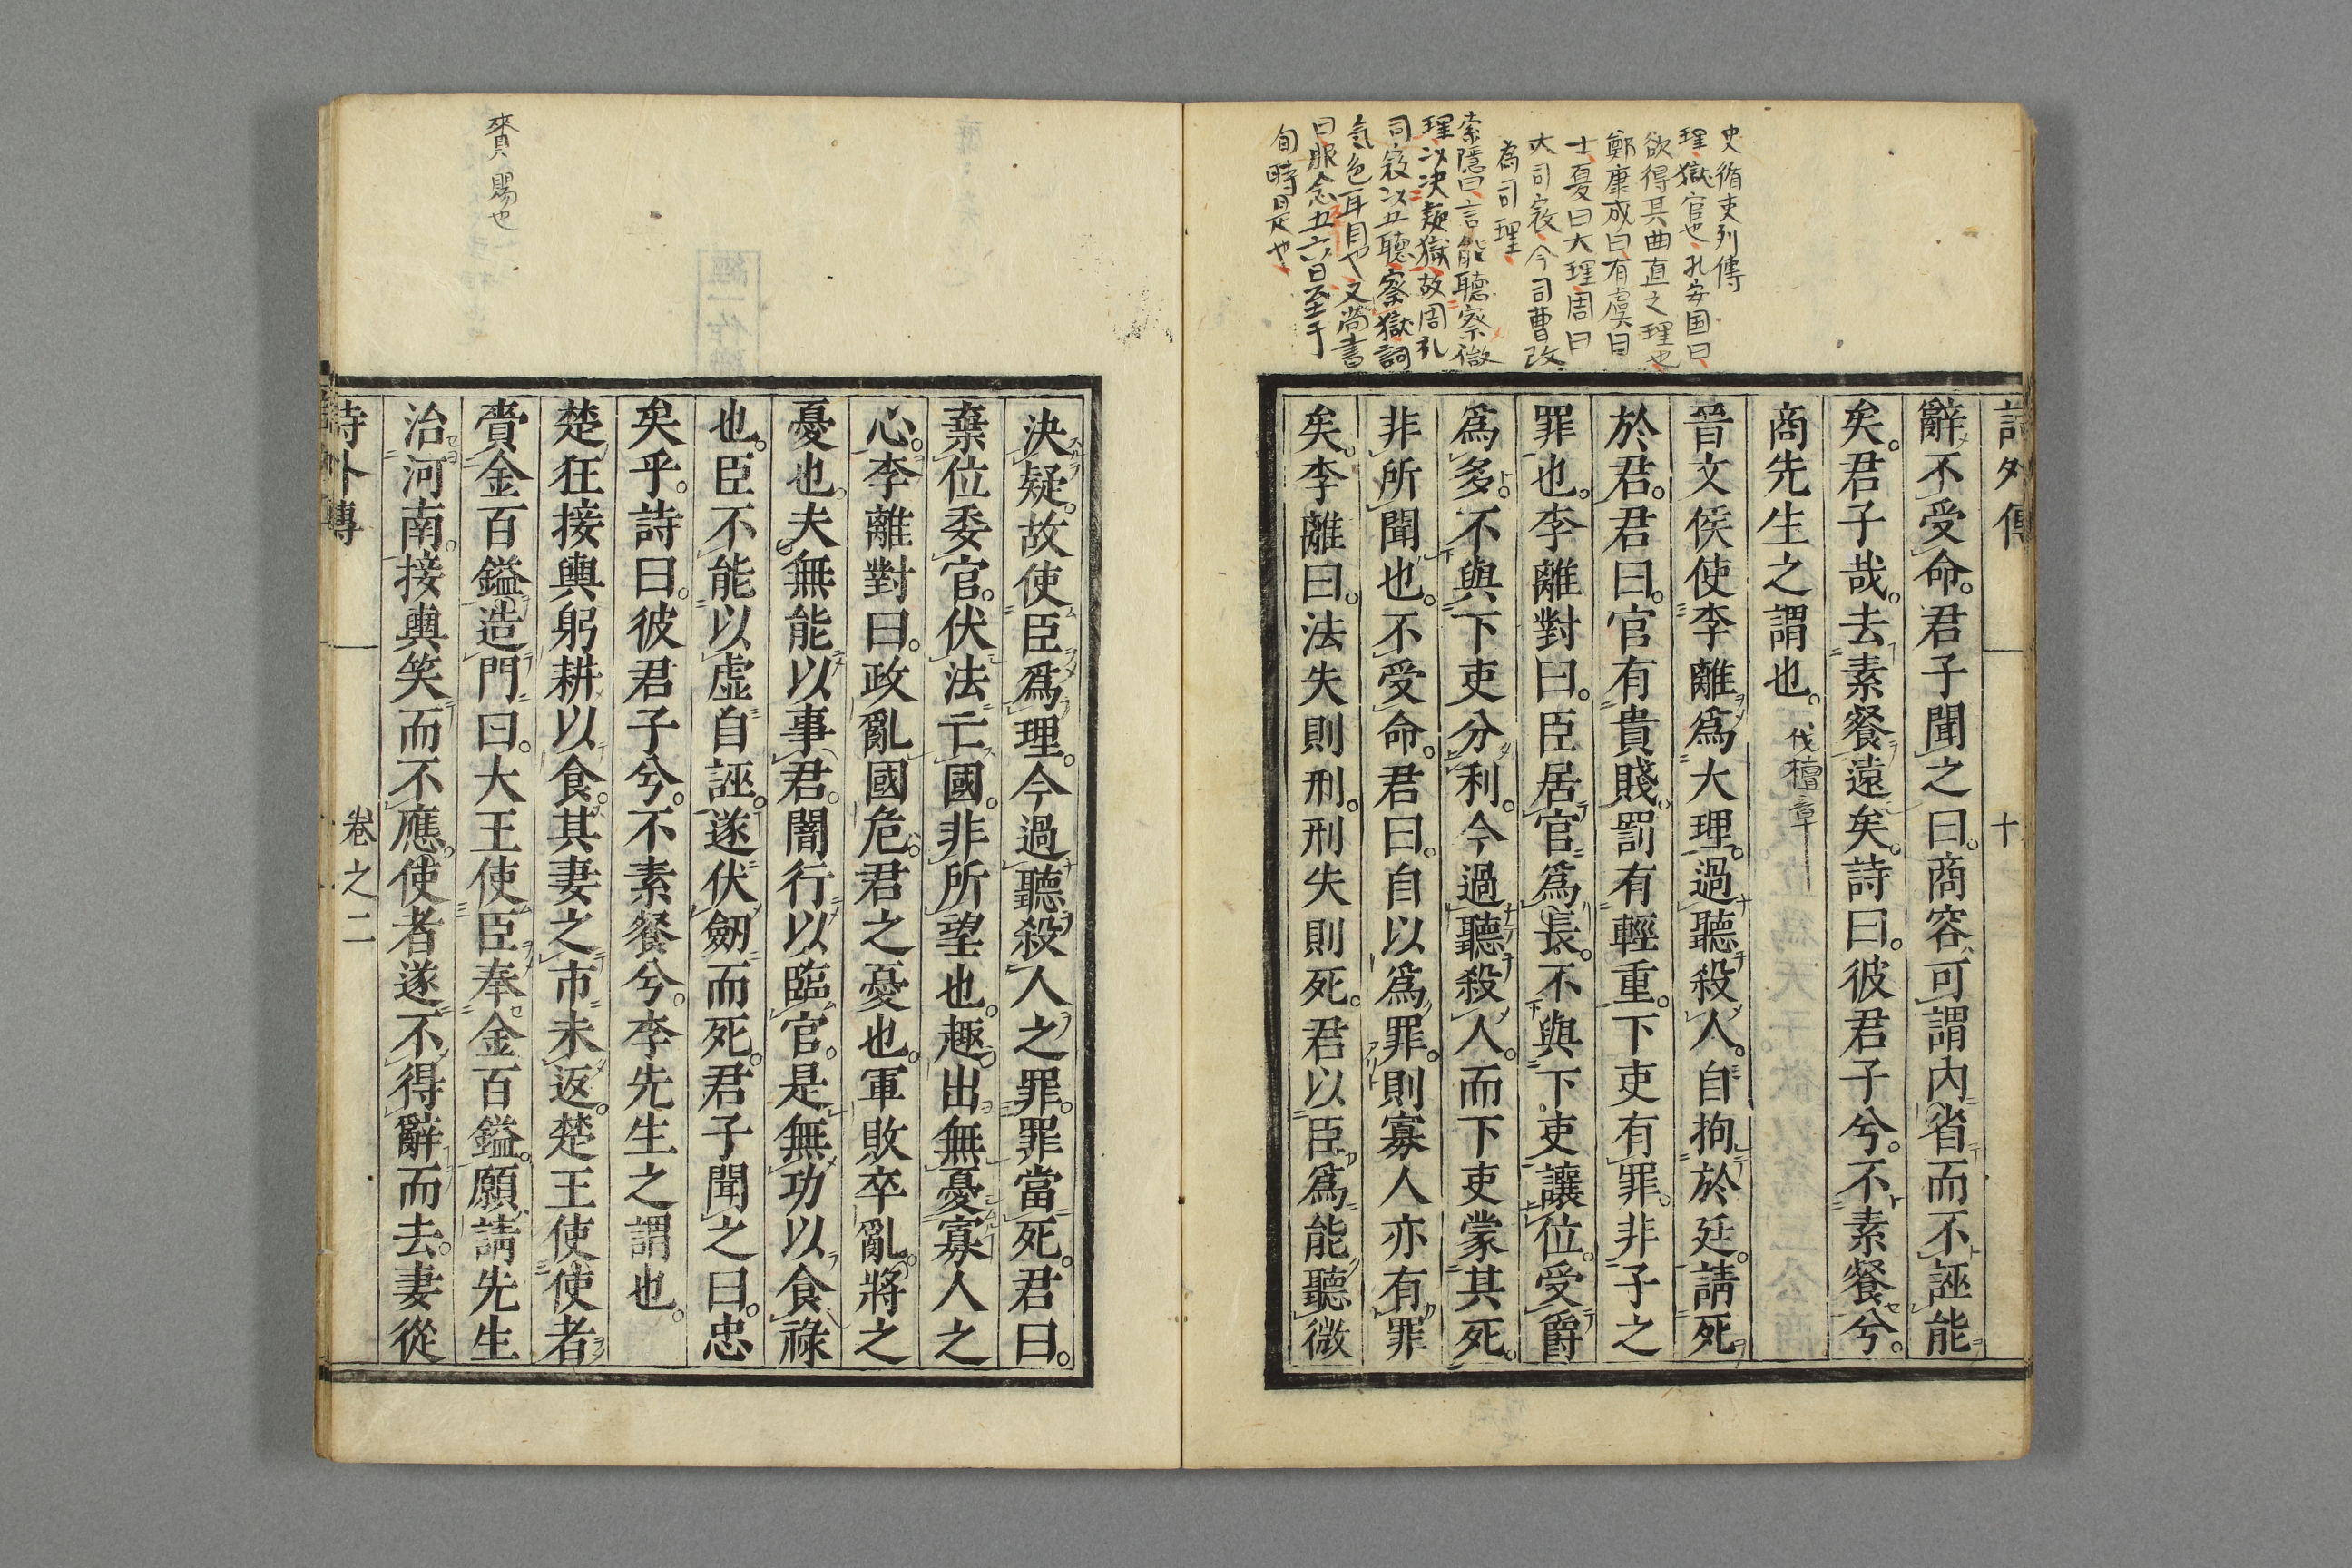 史循吏列傳
理獄官也孔安国曰
欲得其曲直之理也
鄭康成曰有虞曰
士夏曰大理周曰
大司寇今司曹改
為司理
索隱曰言能聽察微
理以决疑獄故周礼
司寇以五聽察獄詞
氣色耳目也又尚書
曰服念五六日至于
旬時是也
詩外傳 十
辭不受命。君子聞之曰。商容可謂內省而不誣能
矣。君子哉。去素餐遠矣。詩曰。彼君子兮。不素餐兮。
商先生之謂也。伐檀章
晉文侯使李離爲大理。過聽殺人。自拘於廷。請死
於君。君曰。官有貴賤。罰有輕重。下吏有罪。非子之
罪也。李離對曰。臣居官爲長。不與下吏讓位。受爵
爲多。不與下吏分利。今過聽殺人。而下吏蒙其死。
非所聞也。不受命。君曰。自以爲罪。則寡人亦有罪
矣。李離曰。法失則刑。刑失則死。君以臣爲能聽微
賚賜也
決疑。故使臣爲理。今過聽殺人之罪。罪當死。君曰。
棄位委官。伏法亡國。非所望也。趣出無憂寡人之
心。李離對曰。政亂國危。君之憂也。軍敗卒亂。將之
憂也。夫無能以事君。闇行以臨官。是無功以食祿
也。臣不能以虛自誣。遂伏劒而死。君子聞之曰。忠
矣乎。詩曰。彼君子兮。不素餐兮。李先生之謂也。
楚狂接輿躬耕以食。其妻之市未返。楚王使使者
賫金百鎰造門曰。大王使臣奉金百鎰。願請先生
治河南。接輿笑而不應。使者遂不得辭而去。妻從
詩外傳 卷之二